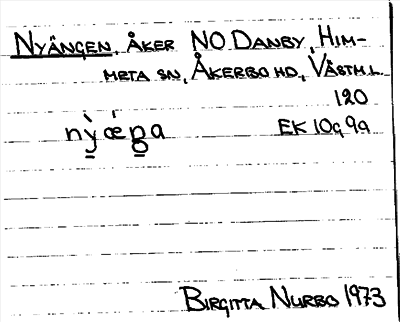 NYÄNGEN, ÅKER NO DANBY, HIM-
META SN, ÅKERBO HD, VÄSTM.L.
120
EK 10g 9a
BIRGITTA NURBO 1973